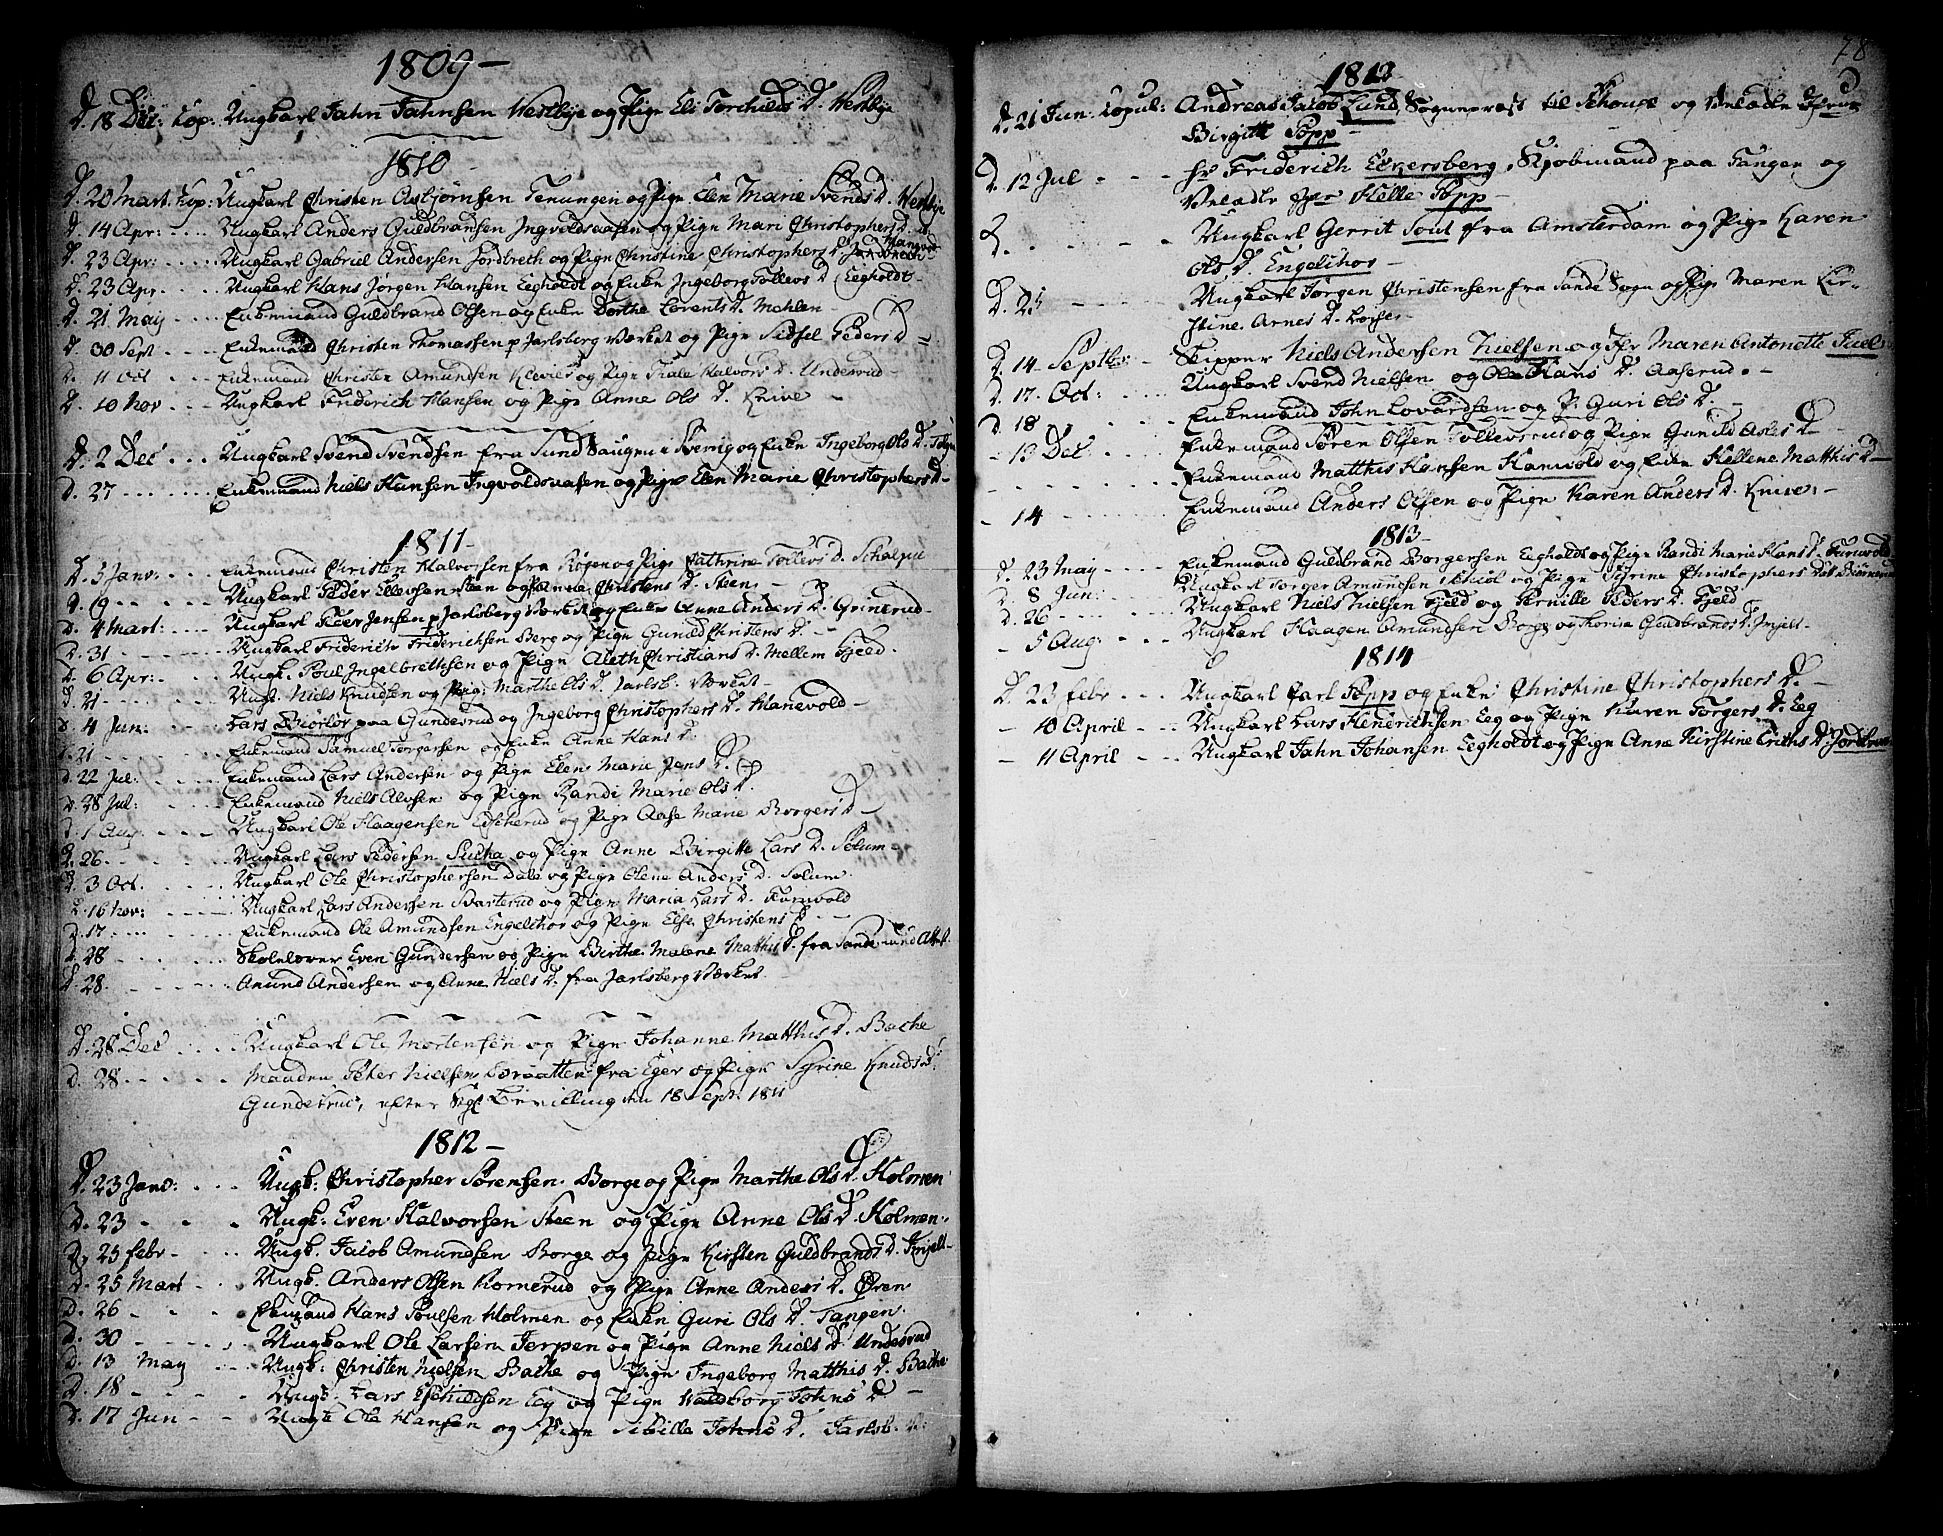 1809 -
d. 18 Dec: Kop. Ungkarl Jahn Jahnsen Westbye og Pige Eli Torchilds D. Westbye
1810
d. 20 Mart. Kop: Ungkarl Christen Asbjørnsen Tenungen og Pige Elen Marie Svends D. Westbye
d. 14 Apr: Ungkarl Anders Guldbransen Ingvoldsaasen og Pige Mari Christophers D.
d. 23 Apr: Ungkarl Gabriel Andersen Jordbreth og Pige Christine Christophers D.
d. 23 Apr Ungkarl Hans Jørgen Hansen Eegholdt og Enke Ingeborg Tollevs D Eegholdt
d. 21 May Enkemand Guldbrand Olsen og Enke Dorthe Lorents D. Mehlen
d. 30 Sept Enkemand Christen Thomassen p Jarlsberg Værket og Pige Sidsel Peders D =
d. 11 Oct Enkemand Christen Amundsen Klever og Pige Thale Halvors D. Underrud
d. 10 Nov Ungkarl Friderich Hansen og Pige Anne Ols D. Knive -
d. 2 Dec Ungkarl Svend Svendsen fra Sund Saugen i Berrig og Enke Ingeborg Ols D.
d. 27 Enkemand Niels Hansen Ingvoldsaasen og Pige Elen Marie Christophers D -
1811 -
d. 5 Janv: Enkemand Christen Halvorsen fra Røgen og Pige Cathrine Tollevs D. Schalpe
d. 9 Ungkarl Peder Ellevsen Steen og Christens D. Steen
d. 4 Mart: Ungkarl Peder Jensen p Jarlsberg Værket og Enke Anne Anders D. Grinerud
d. 31 Ungkarl Friderich Friderichsen Berg og Pige Gunild Christens D. -
d. 6 Apr: Ungk. Poul Ingelbrethsen og Pige Aleth Christians D. Mellem Fjeld.
d. 21 Ungk: Niels Knudsen og Pige Marthe Ols D. Jarlsb: Værket
d. 4 Jun: Lars paa Gunderud og Ingeborg Christophers D. Hanevold -
d. 21 Enkemand Samuel Torgersen og Enke Anne Hans D.
d. 22 Jul: Enkemand Lars Andersen og Pige Elen Marie Jens D.
d. 28 Jul: Enkemand Niels Alvsen og Pige Randi Marie Ols D.
d. 1 Aug Ungkarl Ole Haagensen Edscherud og Pige Aase Marie Borgers D -
d. 26 Ungkarl Lars Pedersen Sucha og Pige Anne Birgitte Lars D. Solum -
d. 3 Oct. Ungkarl Ole Christophersen Dale og Pige Olene Anders D. Solum.
d. 16 Nov: Ungkarl Lars Andersen Svarterud og Pige Maria Lars D. Furuvold
d. 17 Enkemand Ole Amundsen Engelshor og Pige Else Christens D -
d. 28 Skolelærer Even Gundersen og Pige Birthe Malene Matthis D. fra Sande med Attest
d. 28 Amund Andersen og Anne Niels D. fra Jarlsberg Værket
d. 28 Dec Ungkarl Ole Mortensen og Pige Johanne Matthis D. Bache
d. 28 Peter Nielsen fra Eger og Pige Syrine Knuds D:
Gunderud, efter Kgl: Bevilling den 18 Sept. 1811
1812 -
d. 23 Janv: Ungk: Christopher Sørensen Borge og Pige Marthe Ols D. Holmen
d. 23 Ungk: Even Halvorsen Steen og Pige Anne Ols D. Holmen
d. 25 febr Ungk. Jacob Amundsen Borge og Pige Kirsten Guldbrands D.
d. 25 Mart Ungk. Anders Olsen Komerud og Pige Anne Anders D. Øren
d. 26 Enkemand Hans Poulsen Holmen og Enke Guri Ols D. Tangen.
d. 30 Ungkarl Ole Larsen Jerpen og Pige Anne Niels D. Underrud
d. 13 May Ungk: Christen Nielsen Bache og Pige Ingeborg Matthis D. Bache
d. 18 Ungk. Lars Eskildsen Eeg og Pige Waldborg Johns D -
d. 17 Jun Ungk Ole Hansen og Pige Sibille Johns D. Jarlsb. V:
78
1812
d. 21 Jun. Copul: Andreas Jacob Lund, Sogneprest til Schouge og Velædle Jfrue
Birgitte Popp -
d. 12 Jul Hr Friderich Eckersberg, Kjøbmand paa Tangen og
Velædle Jfr Helle Popp -
d. Ungkarl Gerrit Tout fra Amsterdam og Pige Karen
Ols D. Engelshor -
d. 25 Ungkarl Torgen Christensen fra Sande Sogn og Pige Maren Kir-
stine Arnes D.
d. 14 Septbr Skipper Niels Andersen Nielsen og Jfr Maren Antonette Juel
d. 17. Oct: Ungkarl Svend Nielsen og Ole Hans D. Aaserud.
d. 18 Enkemand John Lovardsen og P. Guri Ols D. -
- 13 Dec Enkemand Søren Olsen Tollevsrud og Pige Gunild Asles D -
- Enkemand Matthis Hansen Hanevold og Enke Hellene Matthis D -
- 14 Enkemand Anders Olsen og Pige Karen Anders D. Knive: -
1813 -
d. 23 May Enkemand Guldbrand Borgersen Eegholdt og Pige Randi Marie Hans D. Furuvold
d. 8 Jun: Ungkarl Torger Amundsen og Pige Syrine Christophers Dat
d. 26 Ungkarl Niels Nielsen Fjeld og Pernille Peders D. Fjeld
- 5 Aug: Ungkarl Haagen Amundsen Borge og Horine Guldbrands D.
1814
d. 23 febr Ungkarl Carl Popp og Enke Christine Christophers D. -
- 10 April Ungkarl Lars Henrichsen Eeg og Pige Karen Torgers D. Eeg
- 11 April Ungkarl Jahn Johansen Eegholdt og Pige Anne Kirstine Eriths D.